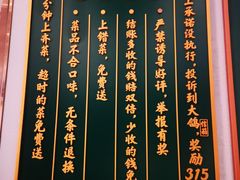 上承诺没执行,投诉到大鸽,奖励315
严禁诱导好评,举报有奖
结账多收的钱赔双倍,少收的钱免
上错菜,免费送
菜品不合口味,无条件退换
分钟上齐菜,超时的菜免费送